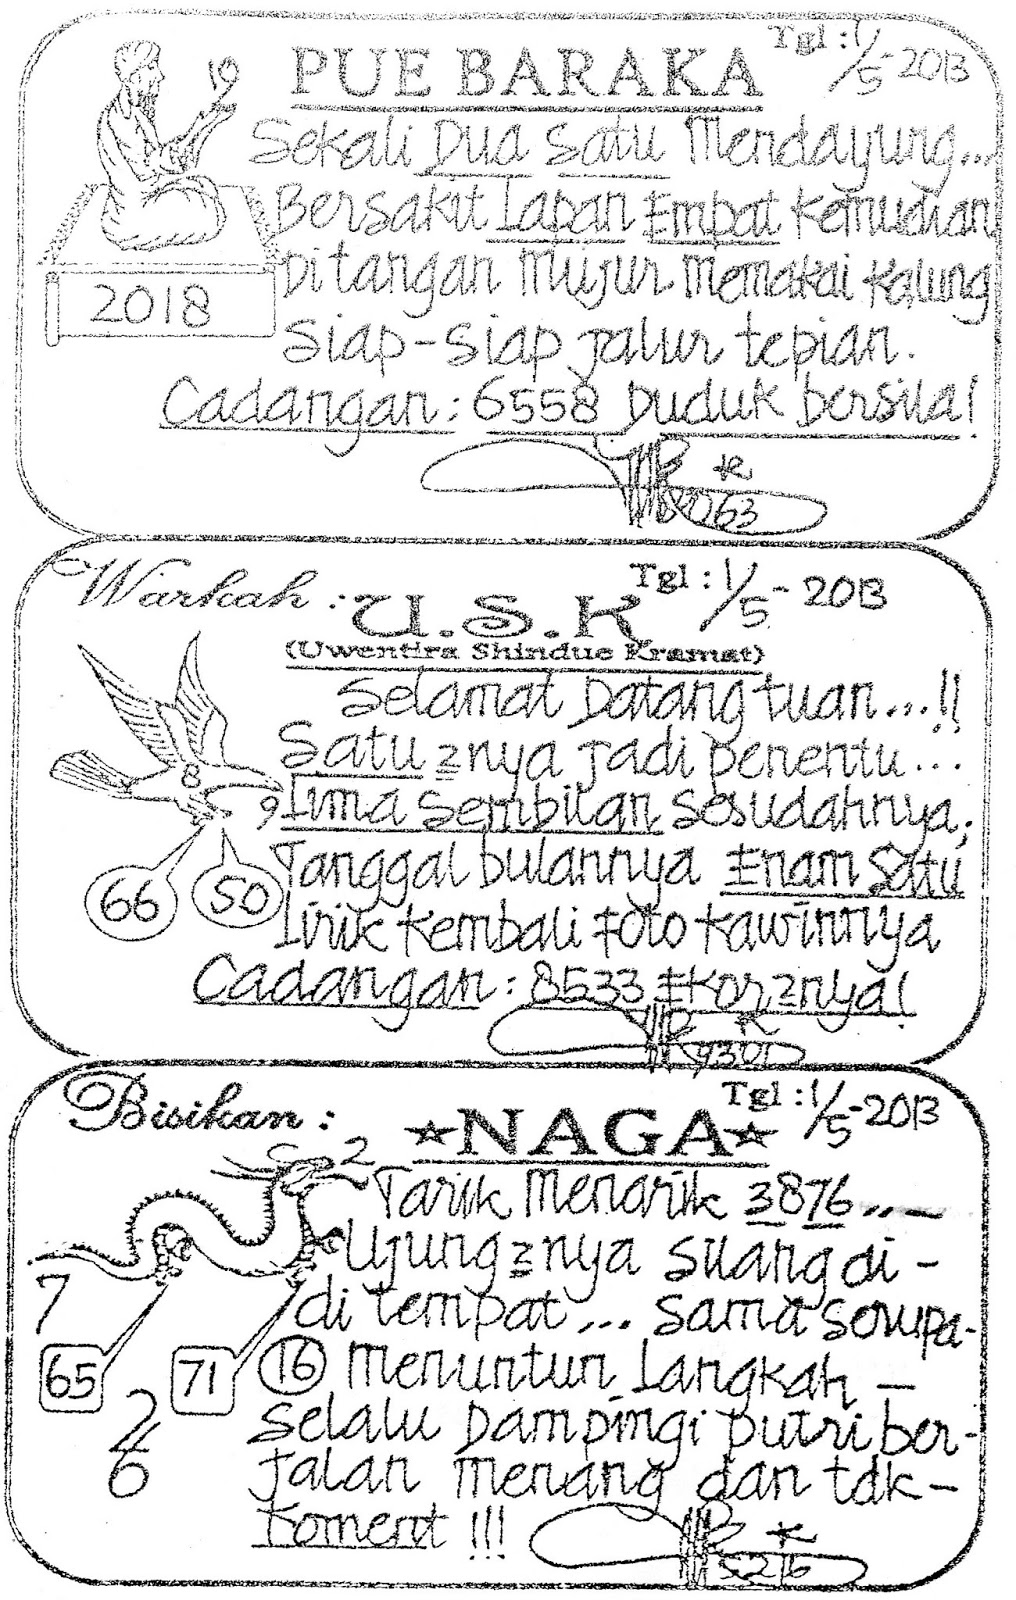 PUE BARAKA
Tgl : 1/5-2013
19
Sekali Dua Satu Mendayung...
Bersakit Lapan Empat Kemudian
Ditangan Mujur Memakai Kalung
2018
Siap-Siap Jalur tepian.
Cadangan : 6558 Duduk bersila!
8063
Warkah : U.S.K
Tgl : 1/5-2013
(Uwentira Shindue Kramat)
Selamat Datang tuan...!!
Satu2nya Jadi penentu...
8
9
Lima Sembilan Sesudahnya,
Tanggal bulannya Enam Satu
66
50
Lirik Kembali Foto Kawinnya
Cadangan : 8533 Ekor2nya!
9301
Bisikan :
☆NAGA☆
Tgl : 1/5-2013
2
Tarik Menarik 3876..—
Ujung2nya Silang di-
7
di tempat... Sama Serupa-
65
71
16 Menuntun Langkah —
2
Selalu Dampingi putri ber-
6
Jalan Menang dan tdk-
Koment !!!
5216